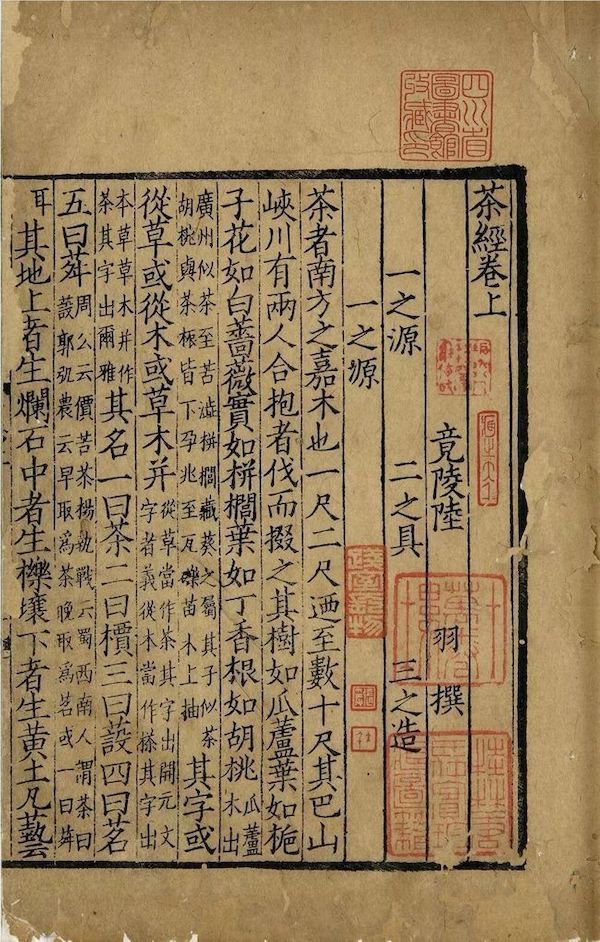 四川省圖書館收藏印
茶經卷上
竟陵陸 羽 撰
一之源 二之具 三之造
一之源
茶者南方之嘉木也一尺二尺迺至數十尺其巴山
峽川有兩人合抱者伐而掇之其樹如瓜蘆葉如梔
子花如白薔薇實如栟櫚葉如丁香根如胡桃 瓜蘆木出
廣州似茶至苦澁栟櫚藏葵之屬其子似茶胡桃與茶根皆下孕兆至瓦礫苗木上抽 其字或
從草或從木或草木并 從草當作茶其字出開元文字者義從木當作搽其字出
本草草木并作茶其字出爾雅 其名一曰茶二曰檟三曰設四曰茗
五曰荈 周公云價苦茶楊執戟云蜀西南人謂茶曰設郭弘農云早取為茶晚取為茗或一曰荈
耳 其地上者生爛石中者生櫟壤下者生黃土凡藝